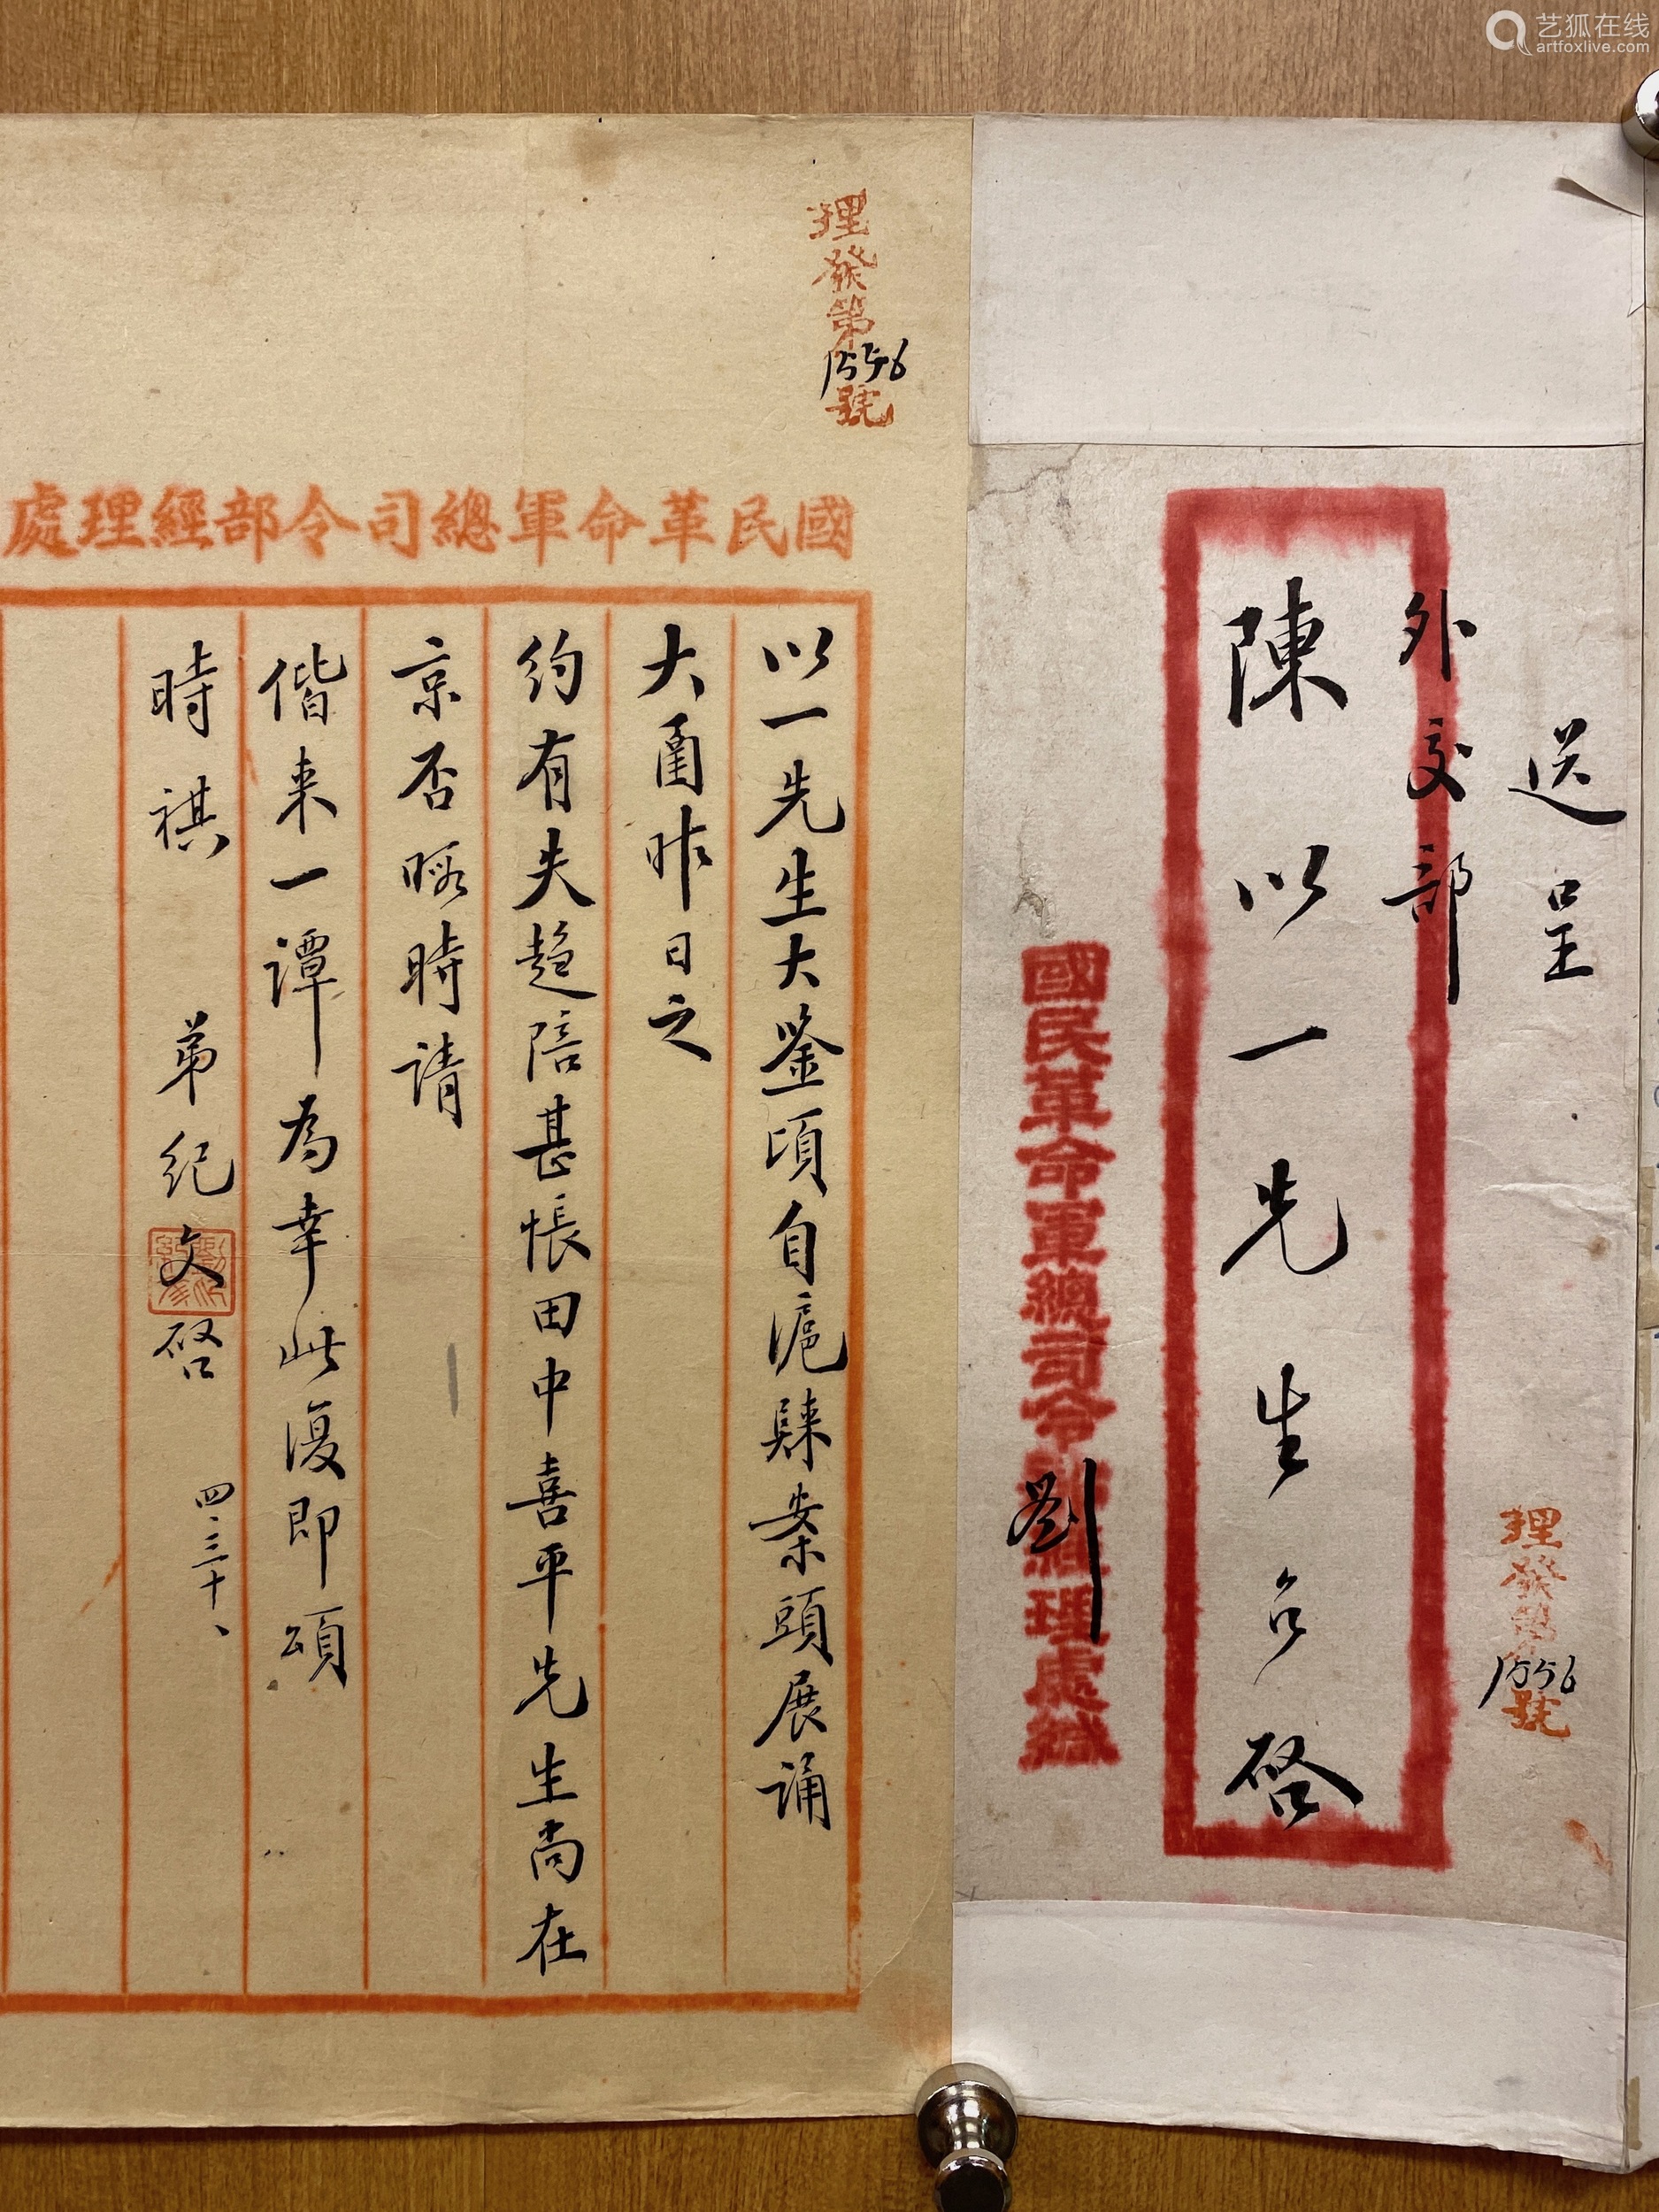 艺狐在线
artfoxlive.com
送呈
外交部
陳以一先生台啓
國民革命軍總司令部經理處緘
劉
理發第1556號
理發第1556號
國民革命軍總司令部經理處
以一先生大鑒頃自滬歸案頭展誦
大函昨日之
約有失趨陪甚悵田中喜平先生尚在
京否暇時請
偕来一譚為幸此復即頌
時祺
弟紀文啓
四·三十、